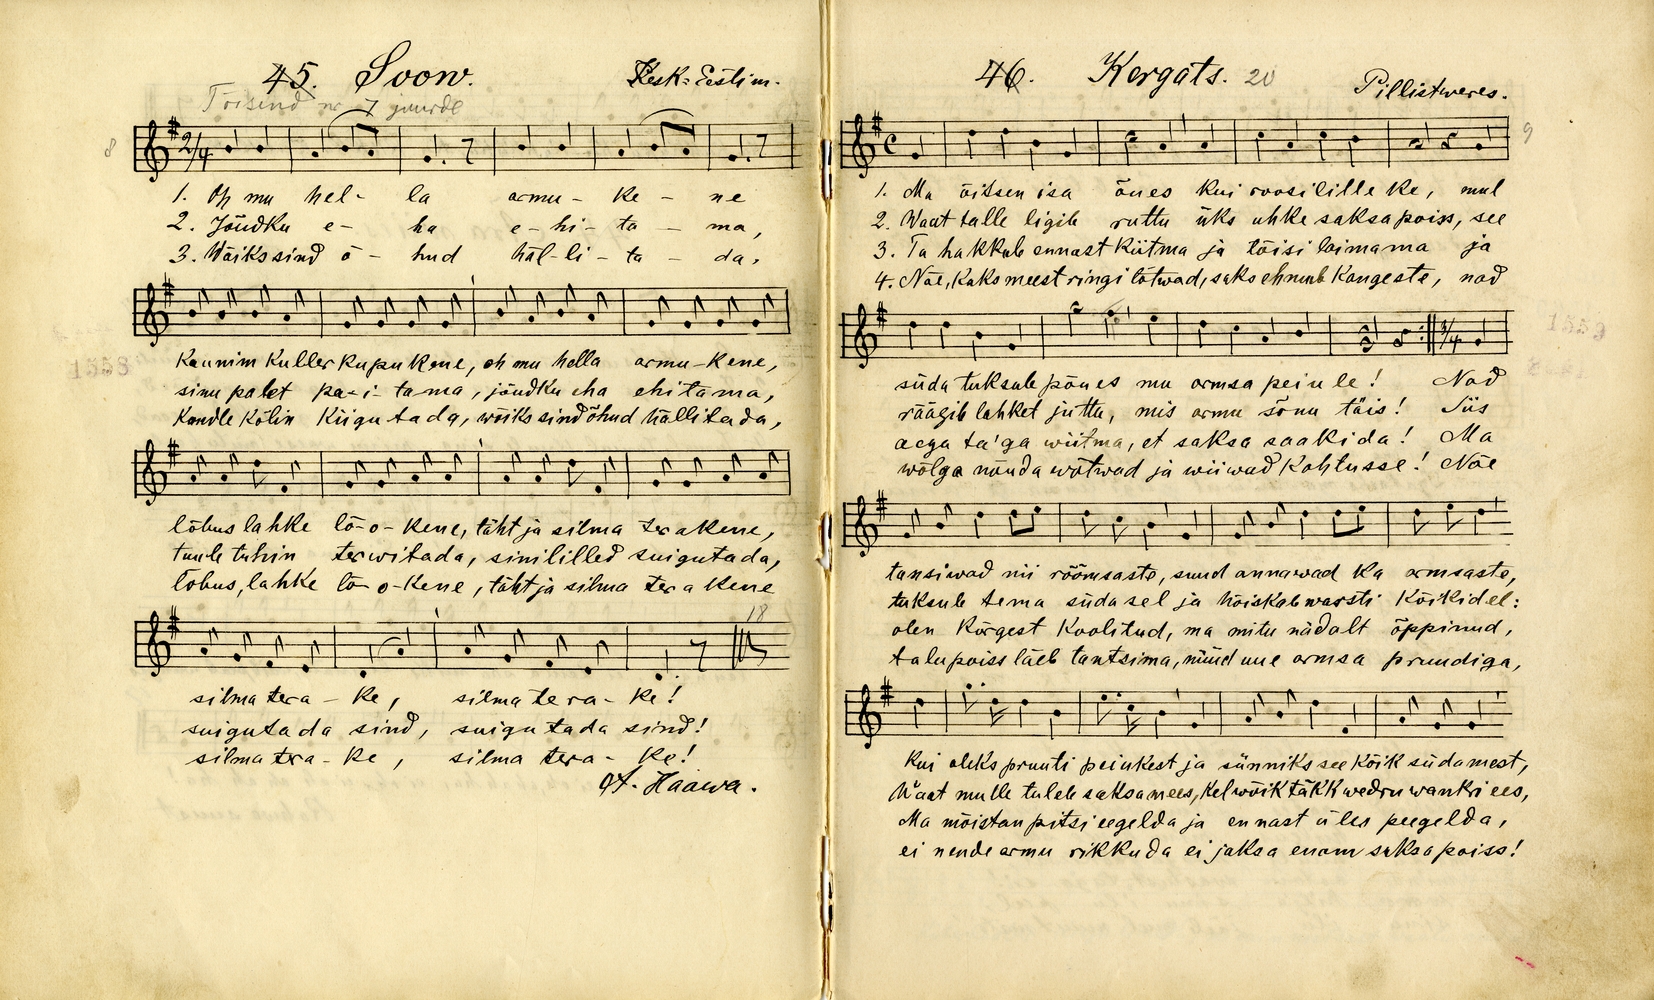 45. Soow. Kesk-Eestim.
Teisend nr 7 juurde
8
2/4
1. Oh mu hel- la armu- ke- ne
2. Jõudku e- ha e-hi-ta- ma,
3. Wõiks sind õ- hud häl-li-ta- da,
Kaunim Kullerkupukene, oh mu hella armu-kene,
sinu palet pa-i-tama, jõudku eha ehitama,
Kandle kõlin Kiigutada, wõiks sind õhud hällitada,
1558
lõbus lahke lo-o-kene, täht ja silma terakene,
tuule tuhin terwitada, sinililled suigutada,
lõbus, lahke lo-o-kene, täht ja silma terakene
18
silma tera- ke, silma tera- ke!
suigutada sind, suigutada sind!
silma tera- ke, silma tera- ke!
A. Haawa.
46. Kergats. 20 Pillistweres.
9
C
1. Ma õitsen isa õues kui roosililleke, mul
2. Waat talle ligib ruttu üks uhke saksapoiss, see
3. Ta hakkab ennast kiitma ja tõisi laimama ja
4. Näe, kaks meest ringi tõtwad, saks ehmub kangeste, nad
3/4
1559
süda tuksub põues mu armsa peiule! Nad
räägib lahket juttu, mis armu sõnu täis! Siis
aega ta'ga wiitma, et saksa saaki da! Ma
wõlga nõuda wõtwad ja wiiwad kohtusse! Näe
tansiwad nii rõõmsaste, suud annawad ka armsaste,
tuksub tema süda sel ja hõiskab warsti kõikidel:
olen kõrgest koolitud, ma mitu nädalt õppinud,
talupoiss läeb tantsima, nüüd uue armsa pruudiga,
kui oleks pruuti peiukest ja sünniks see kõik südamest,
Waat mulle tuleb saksamees, kel wõik täkk wedru wankri ees,
Ma mõistan pitsi eegelda ja ennast üles peegelda,
ei nende armu rikkuda ei jaksa enam saksapoiss!